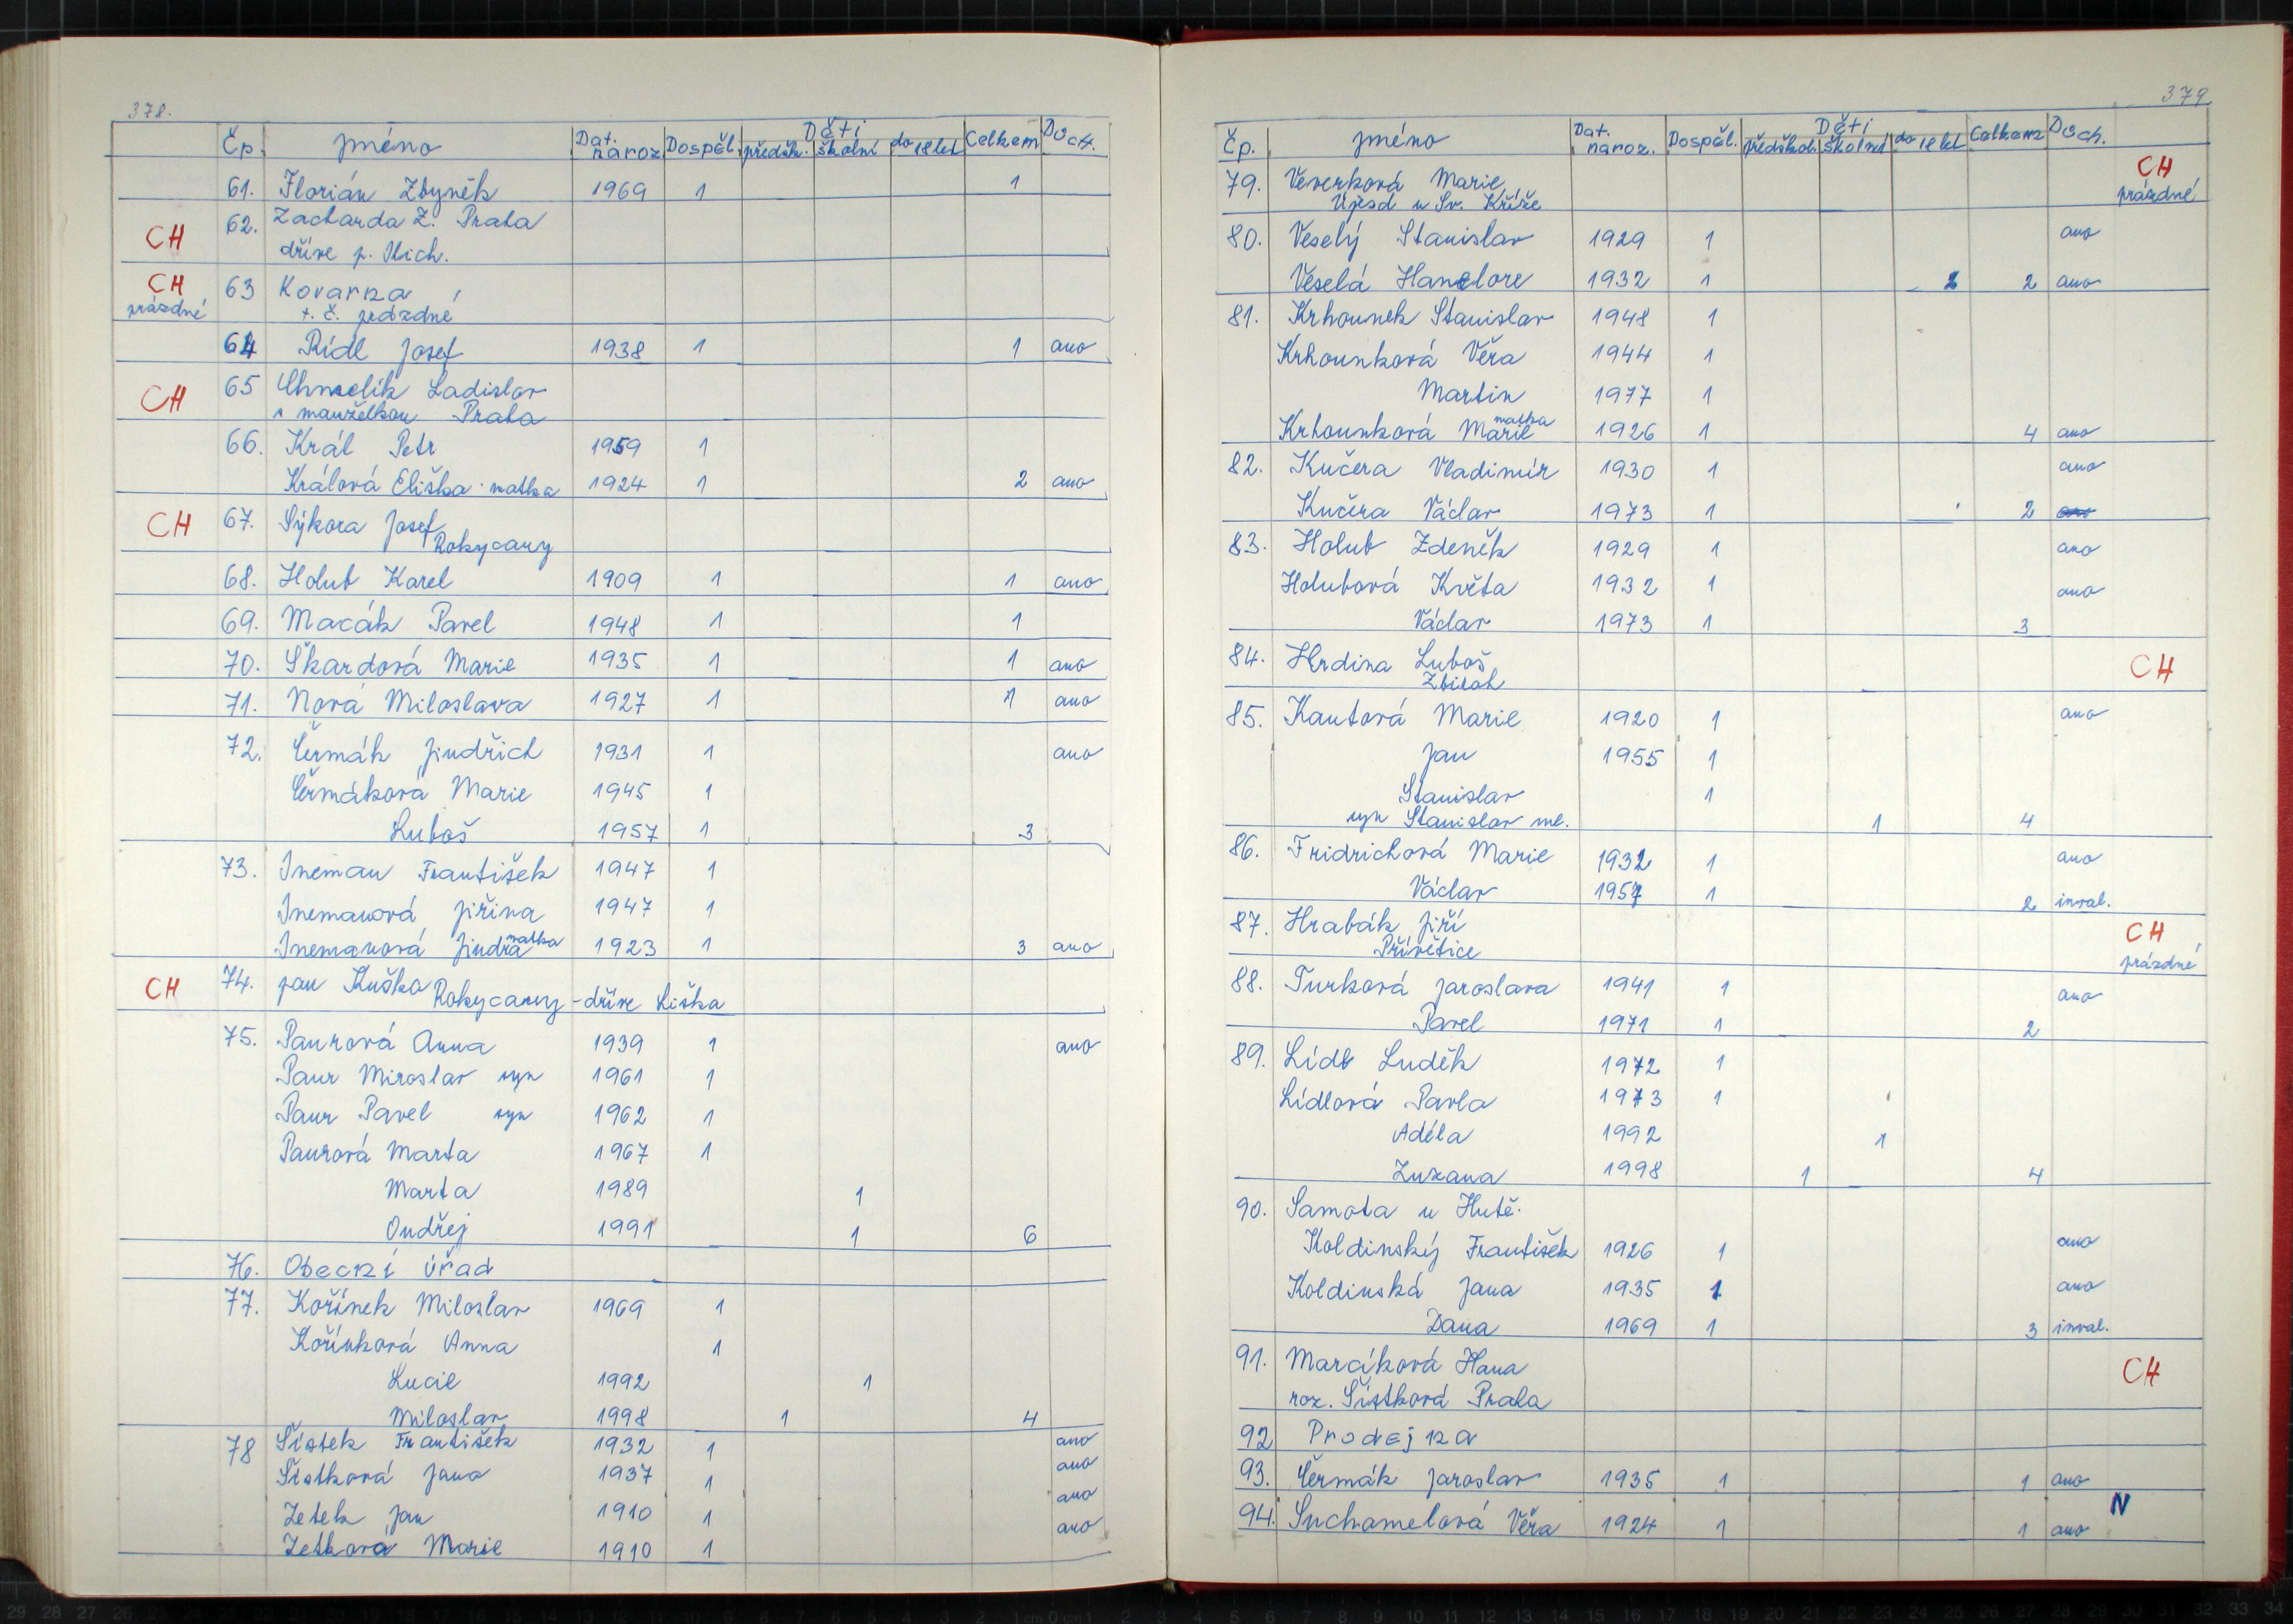 378.
Čp. Jméno Dat. naroz. Dospěl. Děti předšk. školní do 18 let Celkem Důch.
61. Florián Zbyněk 1969 1 1
CH 62. Zacharda Z. Praha
dříve p. Ulich.
CH 63 Kovárna
prázdné t. č. prázdné
64 Rídl Josef 1938 1 1 ano
CH 65 Chmelík Ladislav
s manželkou Praha
66. Král Petr 1959 1
Králová Eliška - matka 1924 1 2 ano
CH 67. Sýkora Josef
Rokycany
68. Holub Karel 1909 1 1 ano
69. Macák Pavel 1948 1 1
70. Škardová Marie 1935 1 1 ano
71. Nová Miloslava 1927 1 1 ano
72. Čermák Jindřich 1931 1 ano
Čermáková Marie 1945 1
Luboš 1957 1 3
73. Ineman František 1947 1
Inemanová Jiřina 1947 1
Inemanová Jindra matka 1923 1 3 ano
CH 74. pan Kuška Rokycany - dříve Liška
75. Paurová Anna 1939 1 ano
Paur Miroslav syn 1961 1
Paur Pavel syn 1962 1
Paurová Marta 1967 1
Marta 1989 1
Ondřej 1991 1 6
76. Obecní úřad
77. Kořínek Miloslav 1969 1
Kořínková Anna 1
Lucie 1992 1
Miloslav 1998 1 4
78 Šístek František 1932 1 ano
Šístková Jana 1937 1 ano
Zetek Jan 1910 1 ano
Zetková Marie 1910 1 ano
379
Čp. Jméno Dat. naroz. Dospěl. Děti předškol. školní do 18 let Celkem Důch.
79. Veverková Marie CH
Újezd u Sv. Kříže prázdné
80. Veselý Stanislav 1929 1 ano
Veselá Hanelore 1932 1 2 ano
81. Krhounek Stanislav 1948 1
Krhounková Věra 1944 1
Martin 1977 1
Krhounková Marie matka 1926 1 4 ano
82. Kučera Vladimír 1930 1 ano
Kučera Václav 1973 1 2 ano
83. Holub Zdeněk 1929 1 ano
Holubová Květa 1932 1 ano
Václav 1973 1 3
84. Hrdina Luboš CH
Zbiroh
85. Kautová Marie 1920 1 ano
Jan 1955 1
Stanislav 1
syn Stanislav ml. 1 4
86. Fridrichová Marie 1932 1 ano
Václav 1957 1 2 inval.
87. Hrabák Jiří CH
Přívětice prázdné
88. Turková Jaroslava 1941 1 ano
Pavel 1971 1 2
89. Lídl Luděk 1972 1
Lídlová Pavla 1973 1
Adéla 1992 1
Zuzana 1998 1 4
90. Samota u Hutě.
Koldinský František 1926 1 ano
Koldinská Jana 1935 1 ano
Dana 1969 1 3 inval.
91. Marcíková Hana CH
roz. Šístková Praha
92 Prodejna
93. Čermák Jaroslav 1935 1 1 ano
94. Suchamelová Věra 1924 1 1 ano N